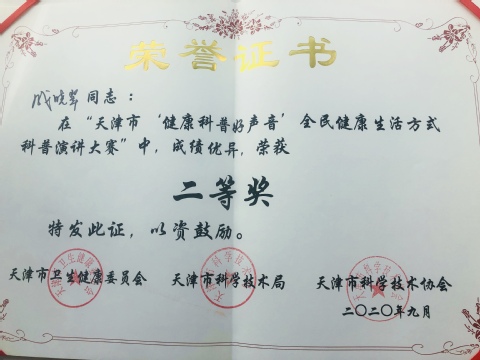 荣誉证书
晓翠同志：
在“天津市‘健康科普好声音’全民健康生活方式
科普演讲大赛”中，成绩优异，荣获
二等奖
特发此证，以资鼓励。
天津市卫生健康委员会 天津市科学技术局 天津市科学技术协会
二〇二〇年九月